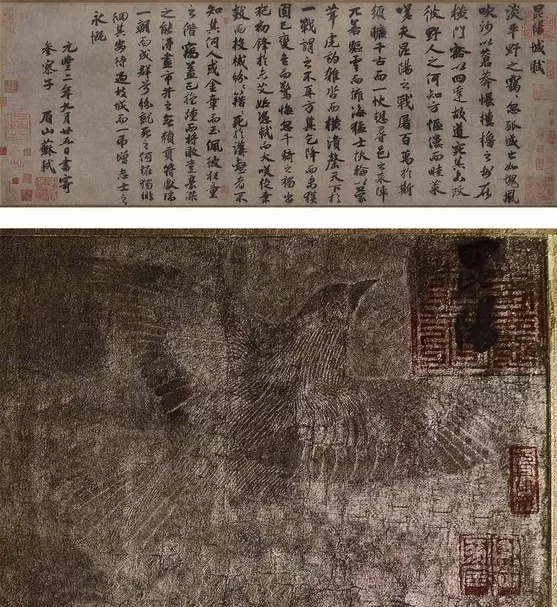 昆陽城賦
淡平野之靄靄忽孤城之如塊風
吹沙以蒼莽悵樓櫓之安在
橫門豁以四達故道宛其未改
彼野人之何知方傴僂而畦菜
嗟夫昆陽之戰屠百萬於斯
須曠千古而一快想尋邑之來陣
兀若驅雲而擁海猛士扶輪以蒙
茸虎豹雜沓而橫潰罄天下於
一戰謂之不再方其乞降而未獲
固已變色而驚悔忽千騎之獨出
犯初鋒於未艾始憑軾而大笑旋棄
鼓而投械紛紛籍籍死於溝壑者不
知其何人或金章而玉佩彼狂童
之僭竊蓋已旋踵而將敗豈豪傑
之能得盡市井之無賴貢符獻瑞
一朝而成群兮紛就死之何怪獨徘
徊其安待過故城而一弔增志士之
永慨
元豐二年九月廿五日書寄
參寥子 眉山蘇軾
昆陽